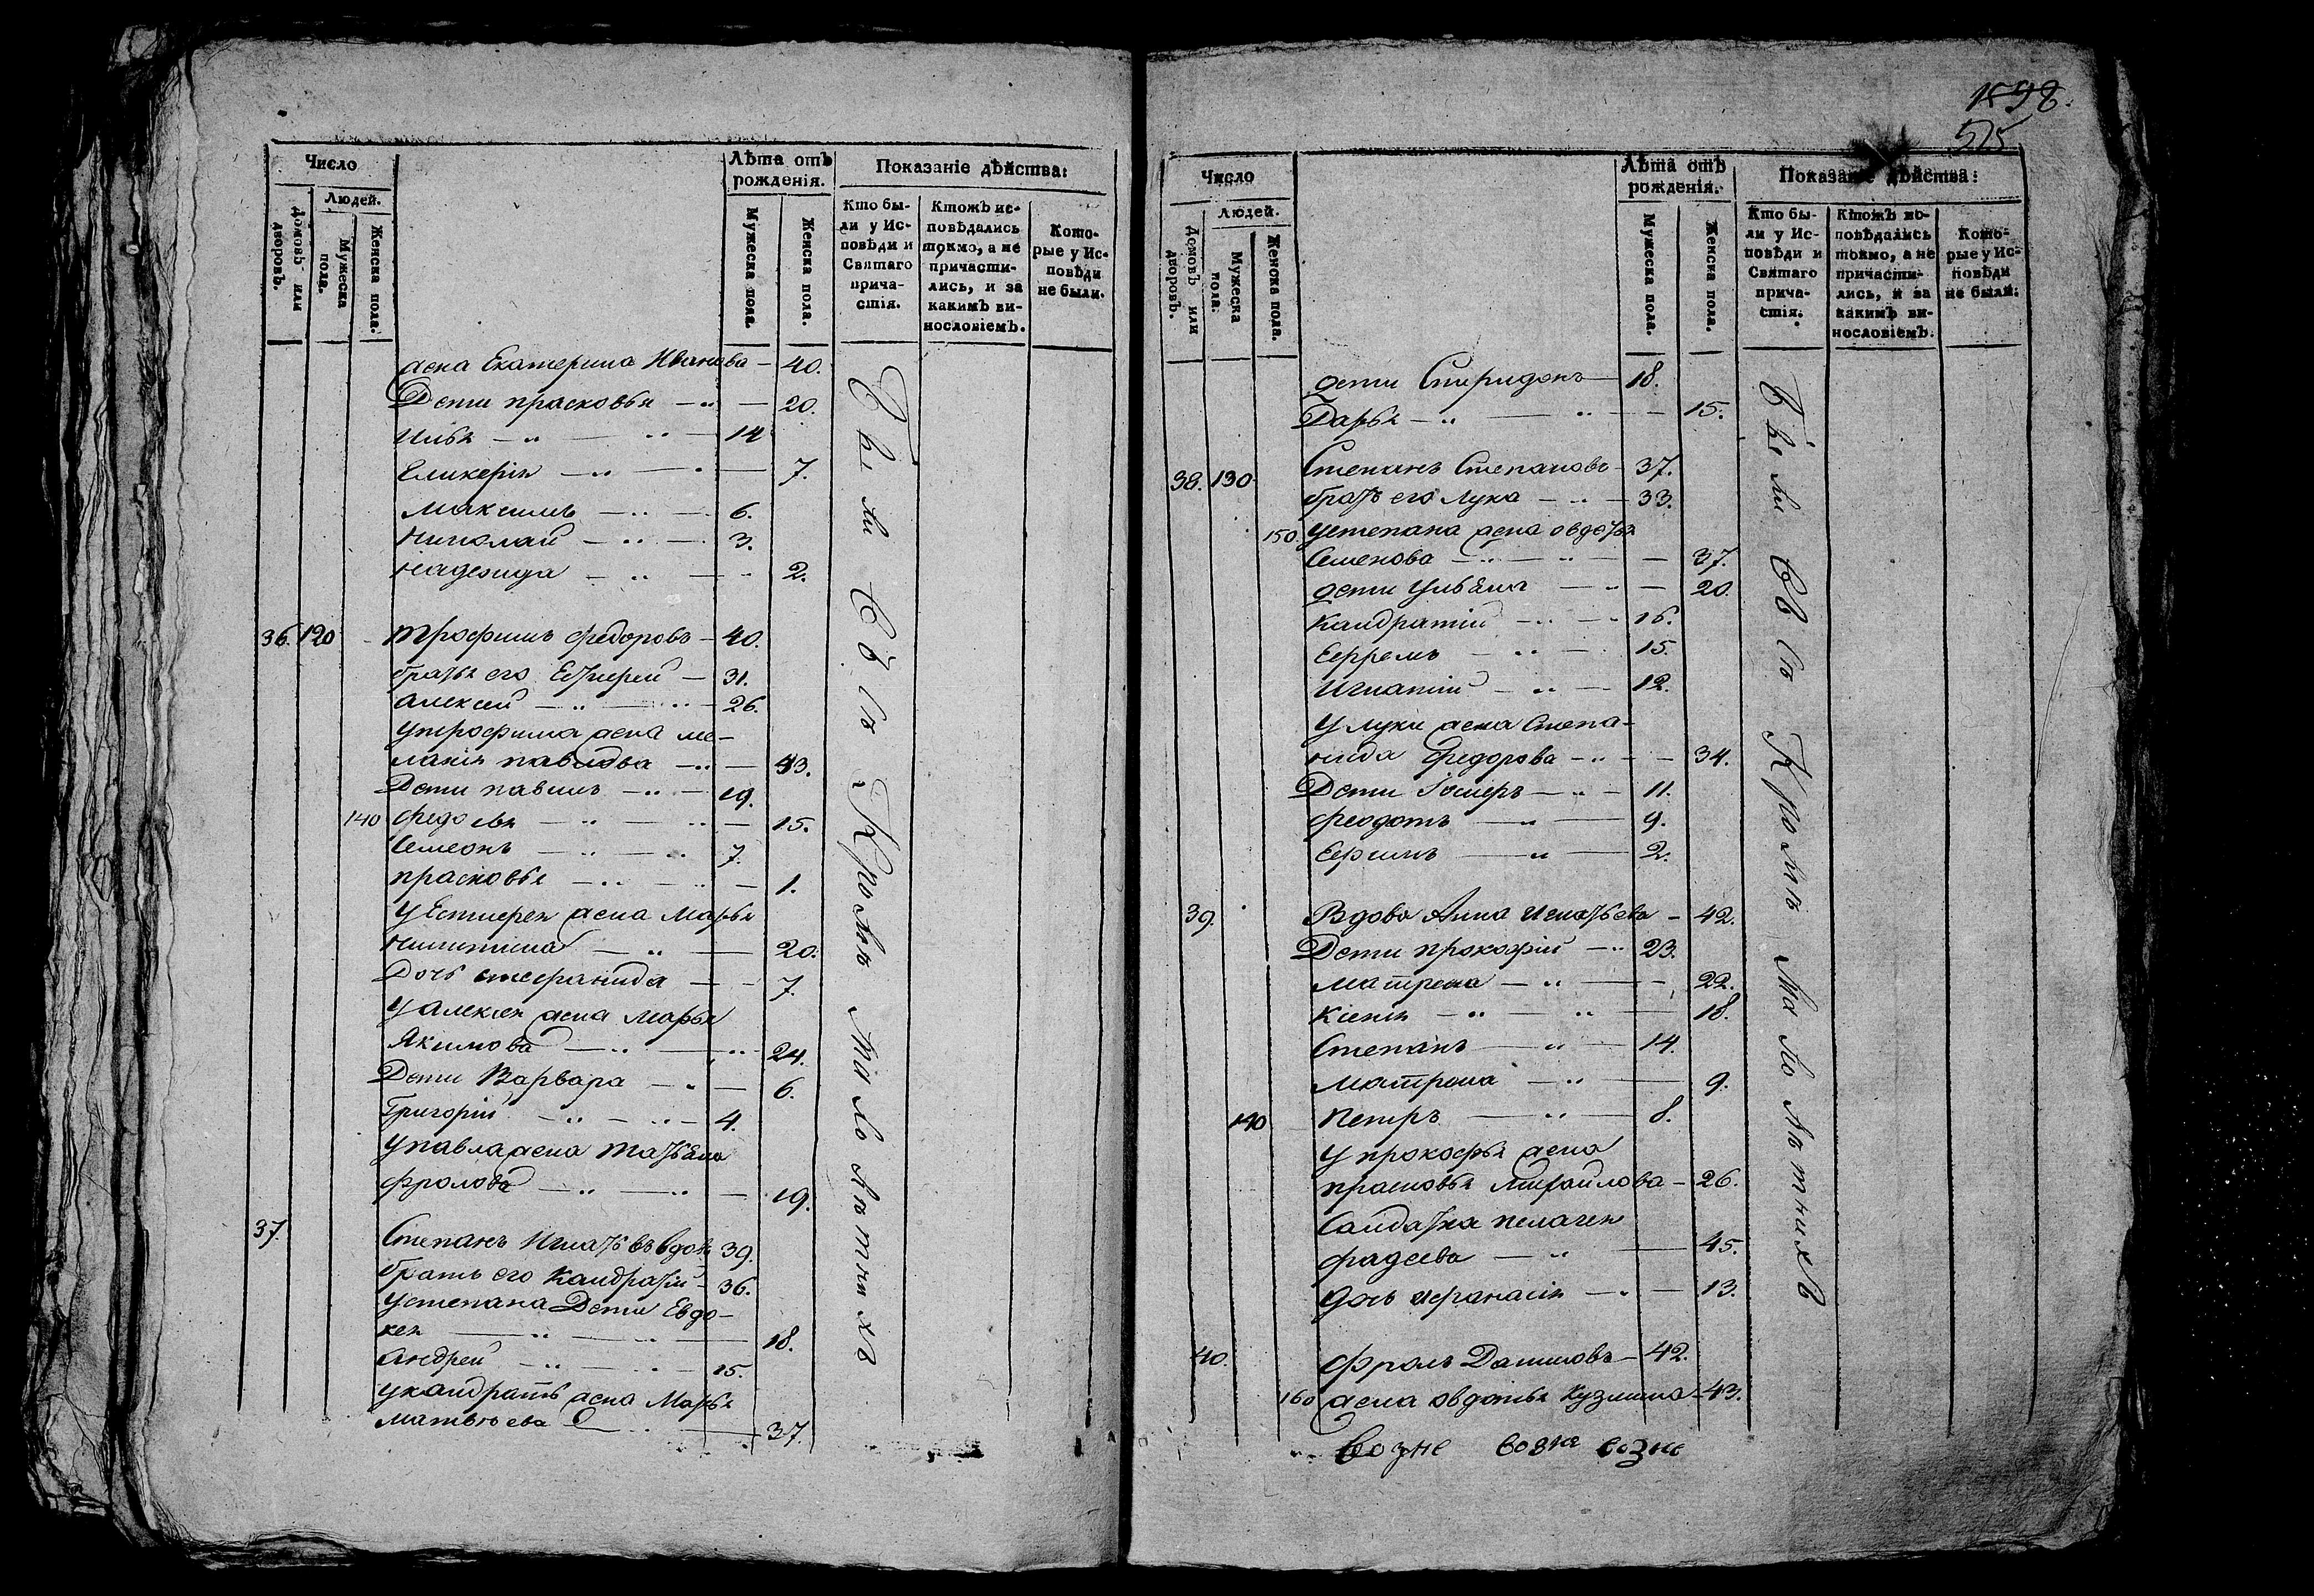 Число
Людей.
Домовъ или дворовъ.
Мужеска пола.
Женска пола.
Лѣта отъ рожденія.
Мужеска пола.
Женска пола.
Показаніе дѣйства:
Кто были у Исповѣди и Святаго причастія.
Ктожъ исповѣдались токмо, а не причастились, и за какимъ винословіемъ.
Которые у Исповѣди не были.
жена Екатерина Иванова — 40.
Дети прасковья — 20.
илья — 14
Гликерія — 7.
Максимъ — 6.
Николай — 3.
надежда — 2.
36. 120 Трофимъ федоровъ — 40.
братья его Евгиереи — 31.
Алексеи — 26.
утрофима жена ме-
ланія павлова — 43.
Дети павилъ — 19.
140 федосья — 15.
Семеонъ — 7.
прасковья — 1.
у жена Марья
никитина — 20.
Дочь стефанида — 7.
у алексея жена марья
Якимова — 24.
Дети Варвара — 6.
Григорій — 4.
упавла жена татьяна
фролова — 19.
37. Степанъ Игнатьевъ вдовъ 39.
братъ его Кандратій — 36.
устепана Дети Евдо-
кея — 18.
андреи — 15.
укандратья жена Марья
матвѣева — 37.
Были Всѣ Кромѣ Малолѣтнихъ
1598.
515
Число
Людей.
Домовъ или дворовъ.
Мужеска пола.
Женска пола.
Лѣта отъ рожденія.
Мужеска пола.
Женска пола.
Показаніе дѣйства:
Кто были у Исповѣди и Святаго причастія.
Ктожъ исповѣдались токмо, а не причастились, и за какимъ винословіемъ.
Которые у Исповѣди не были.
дети Спиридонъ — 18.
Дарья — 15.
38. 130 Степанъ Степановъ — 37.
братъ его лука — 33.
150 устепана жена овдотья
Семенова — 37.
дети ульяна — 20.
кандратій — 16.
Ефремъ — 15.
игнатій — 12.
улуки жена Степа-
нида федорова — 34.
Дети — 11.
феодотъ — 9.
Ефимъ — 2.
39. Вдова Анна игнатьева — 42.
Дети прокофій — 23.
матрена — 22.
Ксенія — 18.
Степанъ — 14.
матрона — 9.
140 петръ — 8.
у прокофья жена
прасковья михайлова — 26.
Салдатка пелагея
фадеева — 45.
дочь афанасія — 13.
40. фролъ Даниловъ — 42.
160 жена овдотья кузмина — 43.
Были Всѣ Кромѣ Малолѣтнихъ
возне возне возне